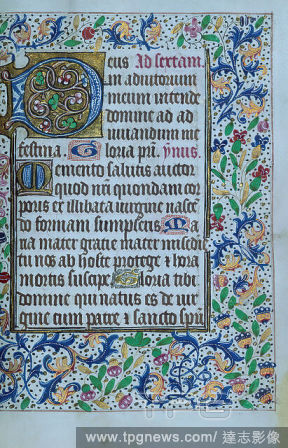 Deus Ad sextam.
in adiutorium
meum intende
domine ad ad
iuuandum me
festina Gloria pri. ymis.
Memento salutis auctor
quod nri quondam cor
poris ex illibata uirgine nascen
do formam sumpseris Ma
ria mater gratie mater mi sedie
tu nos ab hoste protege & hora
mortis suscipe. Gloria tibi
domine qui natus es de uir
gine cum patre & sancto spu
www.tpgnews.com/ 達志影像